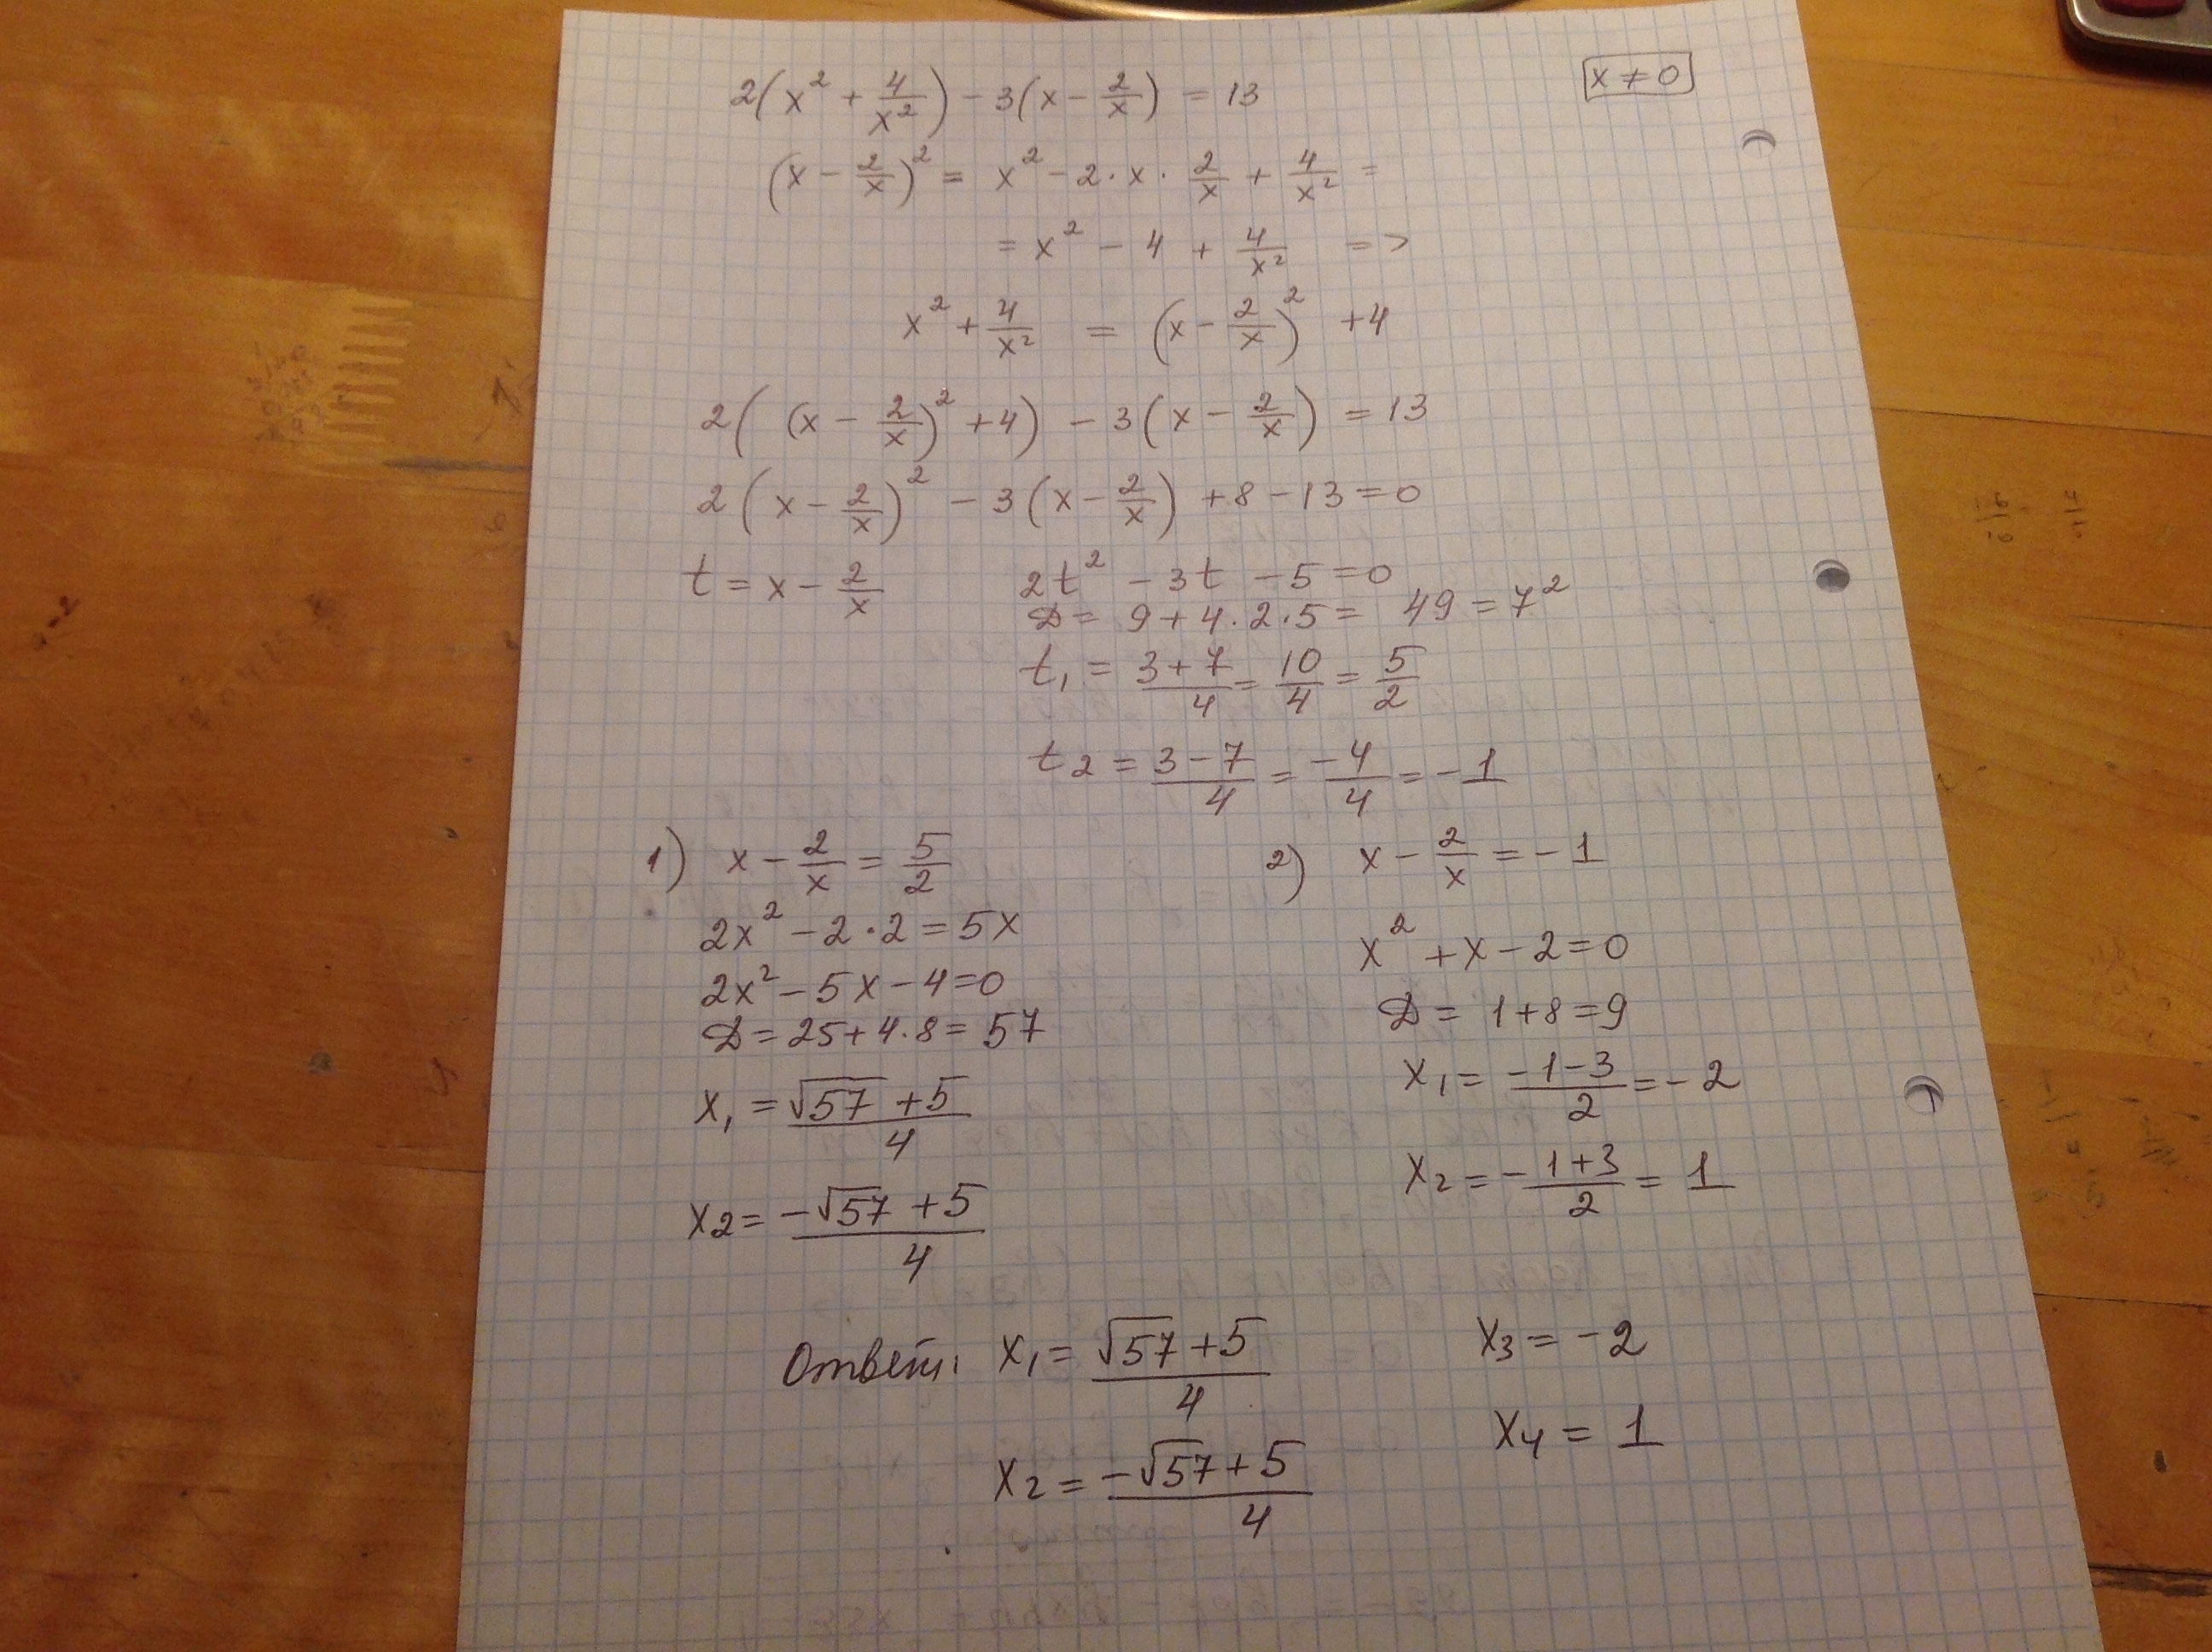 2(x² + 4/x²) - 3(x - 2/x) = 13
x ≠ 0
(x - 2/x)² = x² - 2·x·2/x + 4/x² =
= x² - 4 + 4/x² =>
x² + 4/x² = (x - 2/x)² + 4
2((x - 2/x)² + 4) - 3(x - 2/x) = 13
2(x - 2/x)² - 3(x - 2/x) + 8 - 13 = 0
t = x - 2/x
2t² - 3t - 5 = 0
D = 9 + 4·2·5 = 49 = 7²
t₁ = (3+7)/4 = 10/4 = 5/2
t₂ = (3-7)/4 = -4/4 = -1
1) x - 2/x = 5/2
2x² - 2·2 = 5x
2x² - 5x - 4 = 0
D = 25 + 4·8 = 57
x₁ = (√57 + 5)/4
x₂ = (-√57 + 5)/4
2) x - 2/x = -1
x² + x - 2 = 0
D = 1 + 8 = 9
x₁ = (-1-3)/2 = -2
x₂ = -(1+3)/2 = 1
Ответ: x₁ = (√57 + 5)/4
x₂ = (-√57 + 5)/4
x₃ = -2
x₄ = 1